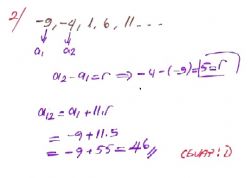 2/ -9, -4, 1, 6, 11 ...
a₁ a₂
a₂ - a₁ = r ⇒ -4 - (-9) = 5 = r
a₁₂ = a₁ + 11.r
= -9 + 11.5
= -9 + 55 = 46 //
CEVAP: D